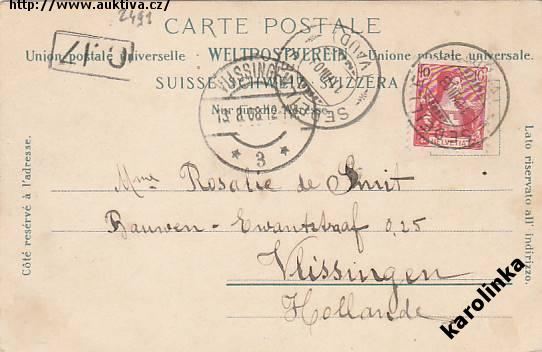 http://www.auktiva.cz/
2491
CARTE POSTALE
Union postale universelle WELTPOSTVEREIN Unione postale universale.
SUISSE SCHWEIZ SVIZZERA
Nur für die Adresse.
VLISSINGEN
13 8 08 12
3
VAUD
10 10
HELVETIA
Côté réservé à l'adresse.
Lato riservato all indirizzo.
Mme Rosalie de Smit
Bauwen-Ewoutstraaf 0,25
Vlissingen
Hollande
karolinka